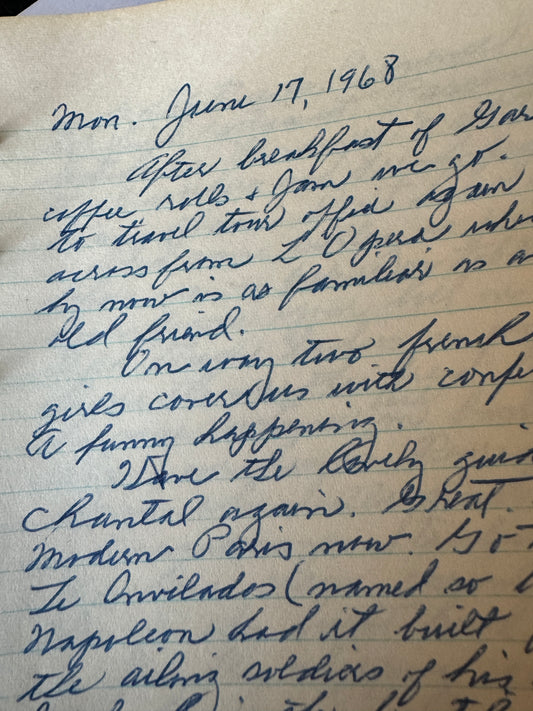 Mon. June 17, 1968
After breakfast of
coffee rolls & Jam we go
to travel tour office again
across from L'Opera
by now is as familiar as a
old friend.
On way two french
girls cover us with
A funny happening.
Have the lovely
Chantal again. Great.
Modern Paris now. Go
Le Invilados (named so
Napoleon had it built
the ailing soldiers of his